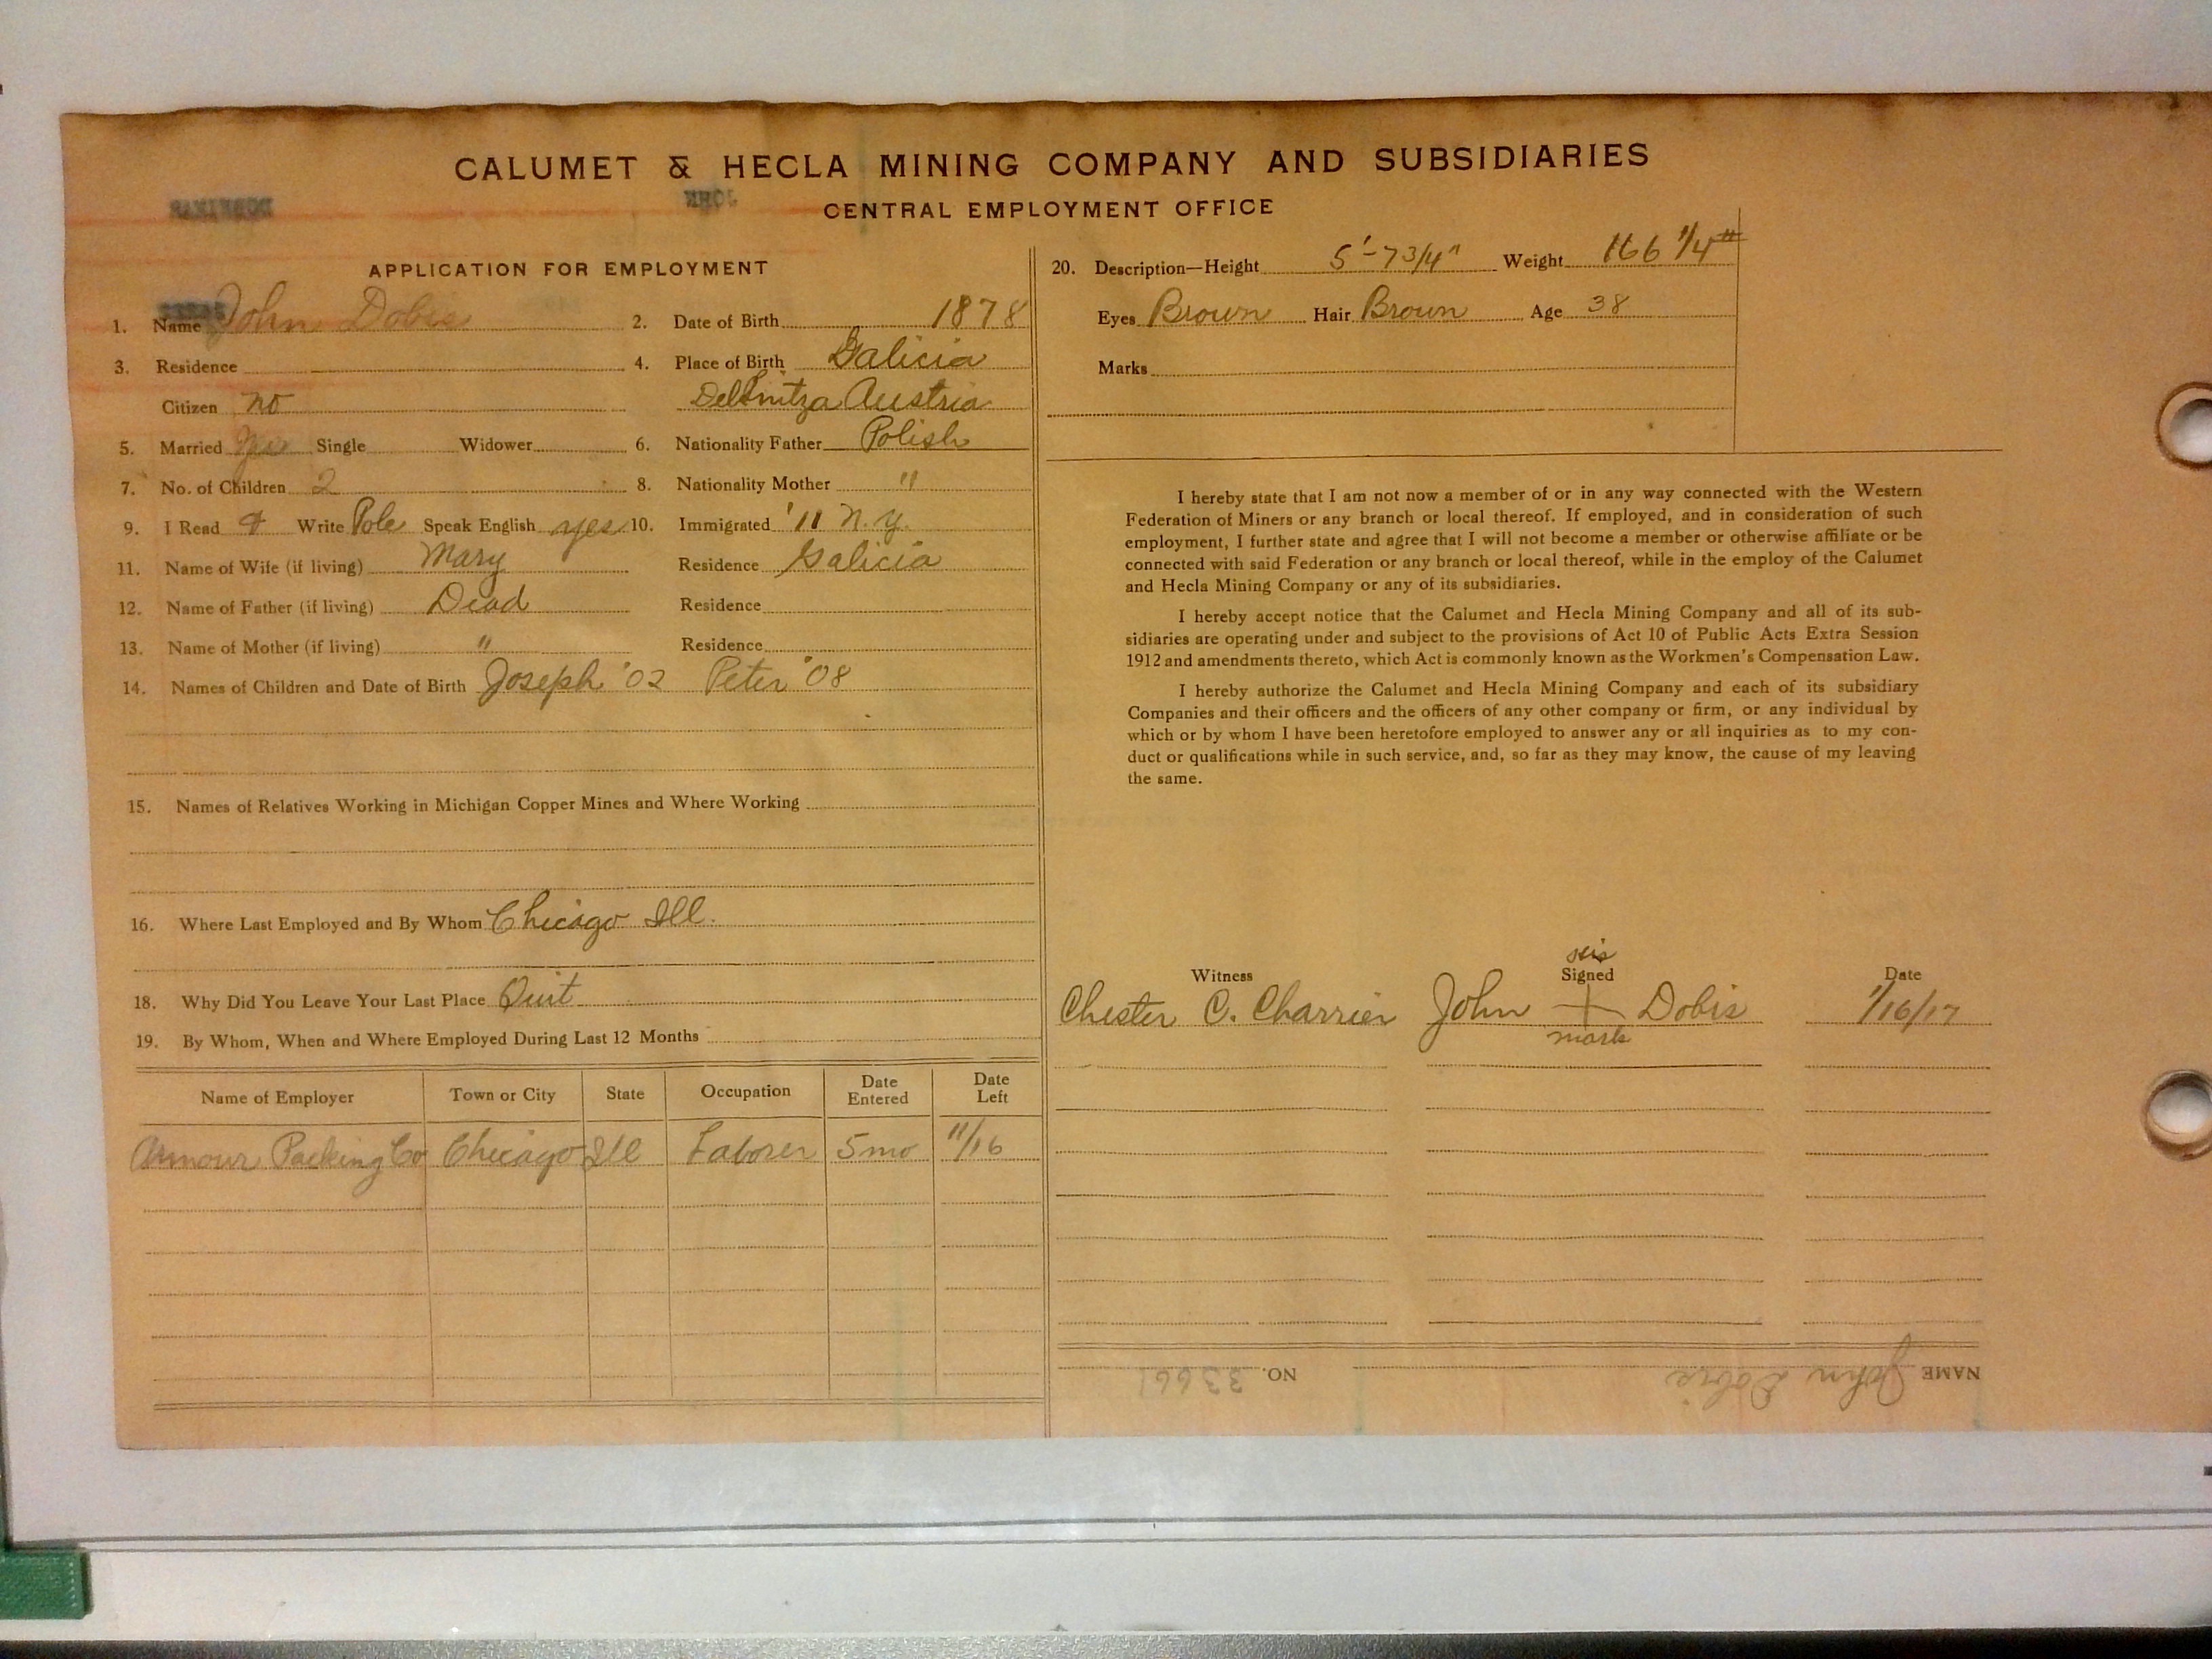 CALUMET & HECLA MINING COMPANY AND SUBSIDIARIES
CENTRAL EMPLOYMENT OFFICE
APPLICATION FOR EMPLOYMENT
1. Name John Dobis 2. Date of Birth 1878
3. Residence 4. Place of Birth Galicia
Citizen no Austria
5. Married yes Single Widower 6. Nationality Father Polish
7. No. of Children 2 8. Nationality Mother "
9. I Read & Write Pole Speak English yes 10. Immigrated '11 N.Y.
11. Name of Wife (if living) Mary Residence Galicia
12. Name of Father (if living) Dead Residence
13. Name of Mother (if living) " Residence
14. Names of Children and Date of Birth Joseph '02 Peter '08
15. Names of Relatives Working in Michigan Copper Mines and Where Working
16. Where Last Employed and By Whom Chicago Ill.
18. Why Did You Leave Your Last Place Quit
19. By Whom, When and Where Employed During Last 12 Months
Name of Employer Town or City State Occupation Date Entered Date Left
Armour Packing Co Chicago Ill Laborer 5 mo 11/16
20. Description—Height 5'-7 3/4" Weight 166 1/4 #
Eyes Brown Hair Brown Age 38
Marks
I hereby state that I am not now a member of or in any way connected with the Western
Federation of Miners or any branch or local thereof. If employed, and in consideration of such
employment, I further state and agree that I will not become a member or otherwise affiliate or be
connected with said Federation or any branch or local thereof, while in the employ of the Calumet
and Hecla Mining Company or any of its subsidiaries.
I hereby accept notice that the Calumet and Hecla Mining Company and all of its sub-
sidiaries are operating under and subject to the provisions of Act 10 of Public Acts Extra Session
1912 and amendments thereto, which Act is commonly known as the Workmen's Compensation Law.
I hereby authorize the Calumet and Hecla Mining Company and each of its subsidiary
Companies and their officers and the officers of any other company or firm, or any individual by
which or by whom I have been heretofore employed to answer any or all inquiries as to my con-
duct or qualifications while in such service, and, so far as they may know, the cause of my leaving
the same.
his
Witness Signed Date
Chester C. Charrier John + Dobis 1/16/17
mark
NAME John Dobis NO. 33661